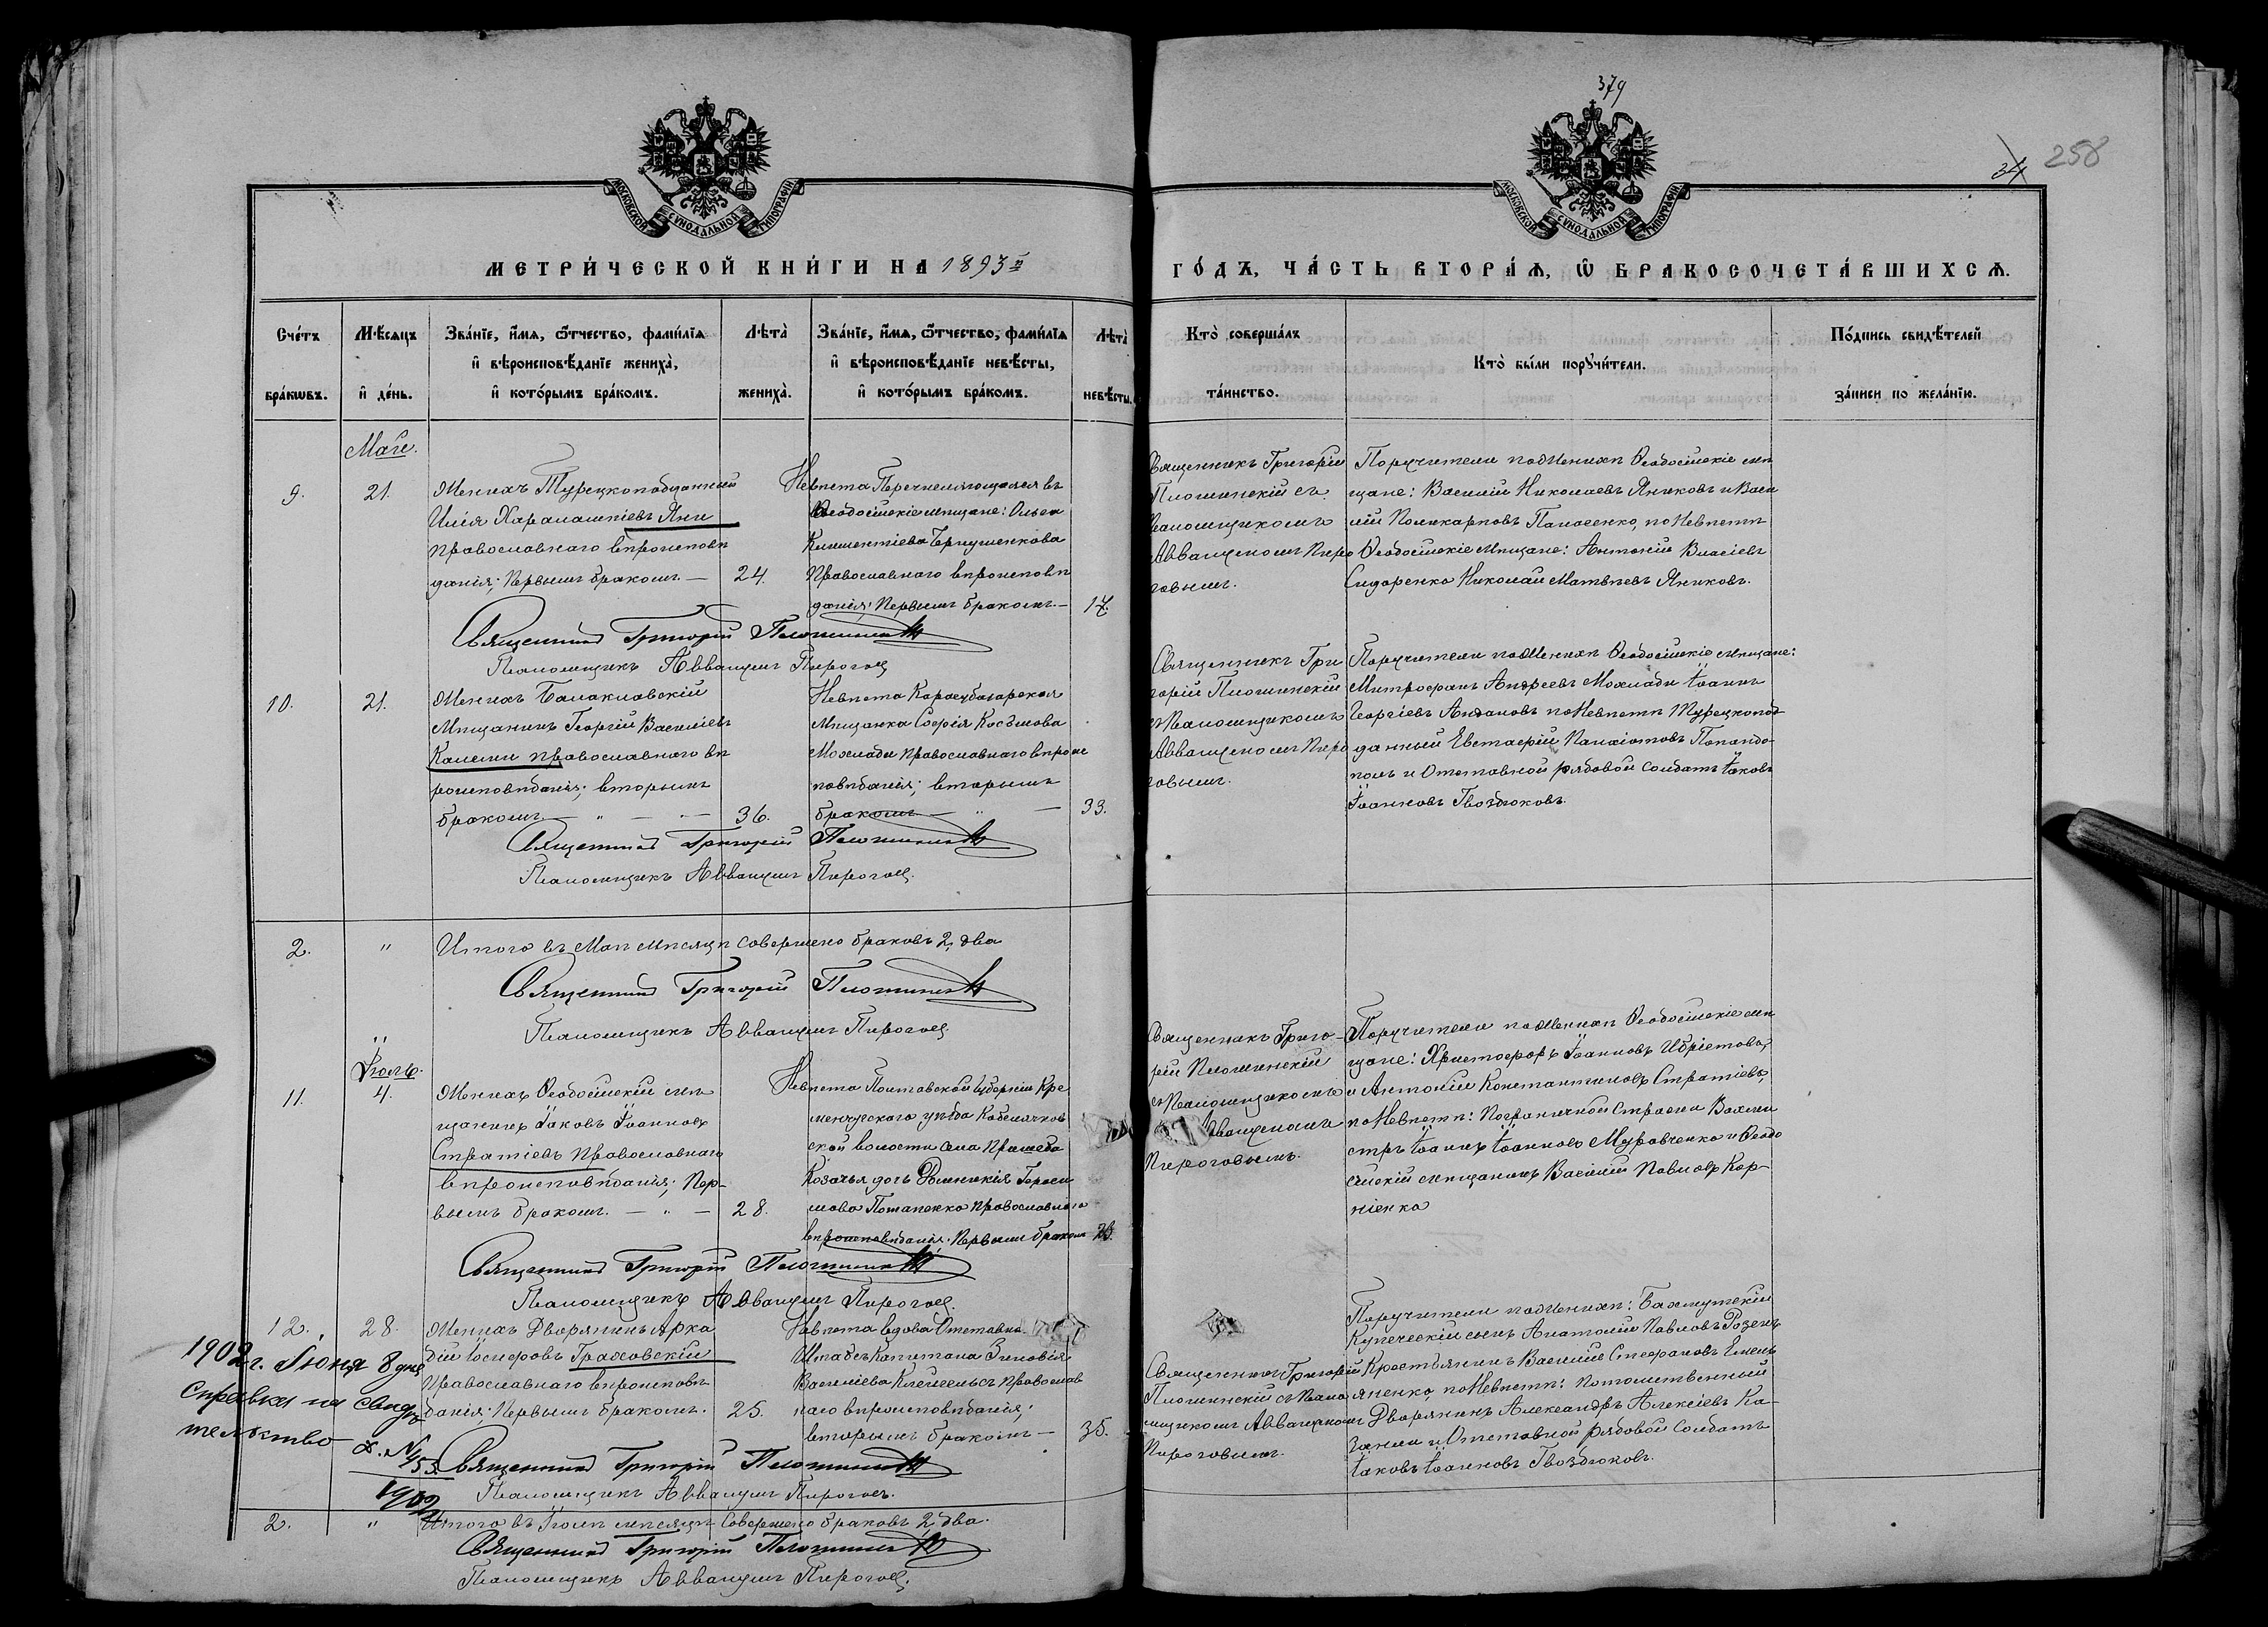 379
34
258
МОСКОВСКОЙ СУНОДАЛЬНОЙ ТИПОГРАФІИ
МОСКОВСКОЙ СУНОДАЛЬНОЙ ТИПОГРАФІИ
МЕТРИ́ЧЕСКОЙ КНИ́ГИ НА 1893й
ГО́ДЪ, ЧА́СТЬ ВТОРА́Ѧ, Ѽ БРАКОСОЧЕТА́ВШИХСѦ.
Сче́тъ
бра́кѡвъ.
Мѣ́сѧцъ
и҆ де́нь.
Зва́нїе, и҆́мѧ, ѻ҆́тчество, фами́лїѧ
и҆ вѣроисповѣ́данїе жениха̀,
и҆ кото́рымъ бра́комъ.
Лѣта̀
жениха̀.
Зва́нїе, и҆́мѧ, ѻ҆́тчество, фами́лїѧ
и҆ вѣроисповѣ́данїе невѣ́сты,
и҆ кото́рымъ бра́комъ.
Лѣта̀
невѣ́сты.
Кто̀ соверша́лъ
та́инство.
Кто̀ бы́ли порꙋчи́тели.
По́дпись свидѣ́телей
за́писи по жела́нїю.
Маiй.
9.
21.
Женихъ Турецкоподданный
Илiя Харалампiевъ Яни
православнаго вѣроисповѣ
данiя; первымъ бракомъ. —
24.
Невѣста Перечисляющаяся въ
Ѳеодосiйскiе мѣщане: Ольга
Климентiева
православнаго вѣроисповѣ
данiя; первымъ бракомъ. —
17.
Священникъ Григорiй
Плошинскiй съ
Псаломщикомъ
Аввакумомъ Пиро
говымъ.
Поручители по женихѣ Ѳеодосiйскiе мѣ
щане: Василiй Николаевъ Яниковъ и Васи
лiй Поликарповъ Панасенко, по невѣстѣ
Ѳеодосiйскiе мѣщане: Антонiй Власiевъ
Сидоренко Николай Матвѣевъ Яниковъ.
Священникъ Григорiй Плошинскiй
Псаломщикъ Аввакумъ Пироговъ
10.
21.
Женихъ Балаклавскiй
мѣщанинъ Георгiй Василiевъ
Калени православнаго вѣ
роисповѣданiя; вторымъ
бракомъ — " — " —
36.
Невѣста Карасубазарская
мѣщанка Софiя Косьмова
Можлади православнаго вѣроис
повѣданiя; вторымъ
бракомъ — " —
33.
Священникъ Гри
горiй Плошинскiй
съ Псаломщикомъ
Аввакумомъ Пиро
говымъ.
Поручители по женихѣ Ѳеодосiйскiе мѣщане:
Митрофанъ Андреевъ Можлади Iоаннъ
Георгiевъ Андановъ по невѣстѣ Турецкопод
данный Евстафiй Панаiотовъ Попандо
полъ и Отставной рядовой солдатъ Iаковъ
Iоанновъ Гвоздюковъ.
Священникъ Григорiй Плошинскiй
Псаломщикъ Аввакумъ Пироговъ.
2.
"
Итого въ Маѣ мѣсяцѣ совершено браковъ 2, два
Священникъ Григорiй Плошинскiй
Псаломщикъ Аввакумъ Пироговъ
Iюль.
11.
4.
Женихъ Ѳеодосiйскiй мѣ
щанинъ Iаковъ Iоанновъ
Стратiевъ православнаго
вѣроисповѣданiя; пер-
вымъ бракомъ. — " —
28.
Невѣста Полтавской губернiи Кре
менчугскаго уѣзда
ской волости села
Козачья дочь Гераси
мова Потапенко православнаго
вѣроисповѣданiя. первымъ бракомъ
Священникъ Григо-
рiй Плошинскiй
съ Псаломщикомъ
Аввакумомъ
Пироговымъ.
Поручители по женихѣ Ѳеодосiйскiе мѣ
щане: Христофоръ Iоанновъ
и Антонiй Константиновъ Стратiевъ,
по невѣстѣ: Пограничной стражи Вахми
стръ Iоаннъ Iоанновъ Муравченко и Ѳеодо
сiйскiй мѣщанинъ Василiй Павловъ Кор-
нiенко
Священникъ Григорiй Плошинскiй
Псаломщикъ Аввакумъ Пироговъ.
12.
28.
Женихъ Дворянинъ Арка
дiй Iосифовъ Граховскiй
православнаго вѣроисповѣ
данiя; первымъ бракомъ.
25.
Невѣста вдова Отставнаго
Штабсъ Капитана Зиновiя
Василiева Клейгельсъ православ
наго вѣроисповѣданiя;
вторымъ бракомъ —
35.
Священникъ Григорiй
Плошинскiй съ Псало
мщикомъ Аввакумомъ
Пироговымъ.
Поручители по женихѣ: Бахмутскiй
Купеческiй сынъ Анатолiй Павловъ Розенъ
Крестьянинъ Василiй Стефановъ Емель
яненко, по невѣстѣ: потомственный
Дворянинъ Александръ Алексiевъ Ка-
и Отставной рядовой солдатъ
Iаковъ Iоанновъ Гвоздюковъ.
1902 г. Iюня 8 дня
справка на свидѣ
тельство
№ 453
1902
Священникъ Григорiй Плошинскiй
Псаломщикъ Аввакумъ Пироговъ.
2.
"
Итого въ Iюлѣ мѣсяцѣ совершено браковъ 2, два.
Священникъ Григорiй Плошинскiй
Псаломщикъ Аввакумъ Пироговъ.